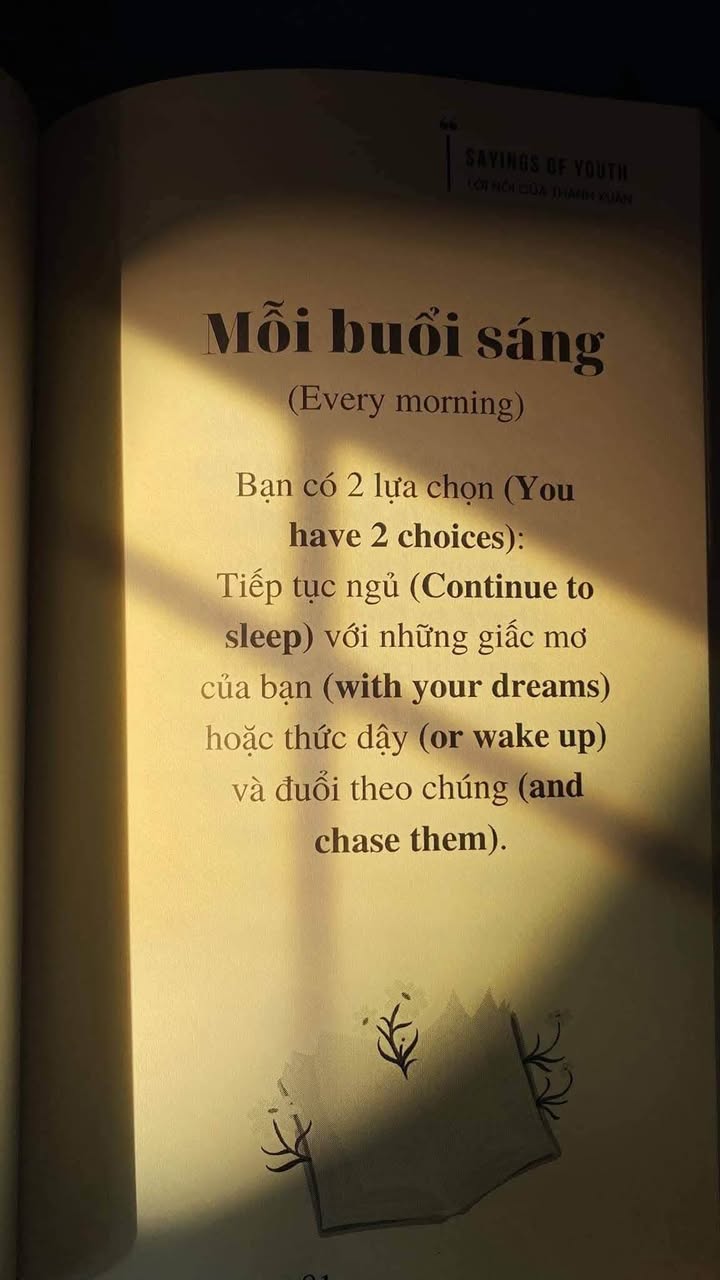 “
SAYINGS OF YOUTH
LỜI NÓI CỦA THANH XUÂN
Mỗi buổi sáng
(Every morning)
Bạn có 2 lựa chọn (You
have 2 choices):
Tiếp tục ngủ (Continue to
sleep) với những giấc mơ
của bạn (with your dreams)
hoặc thức dậy (or wake up)
và đuổi theo chúng (and
chase them).